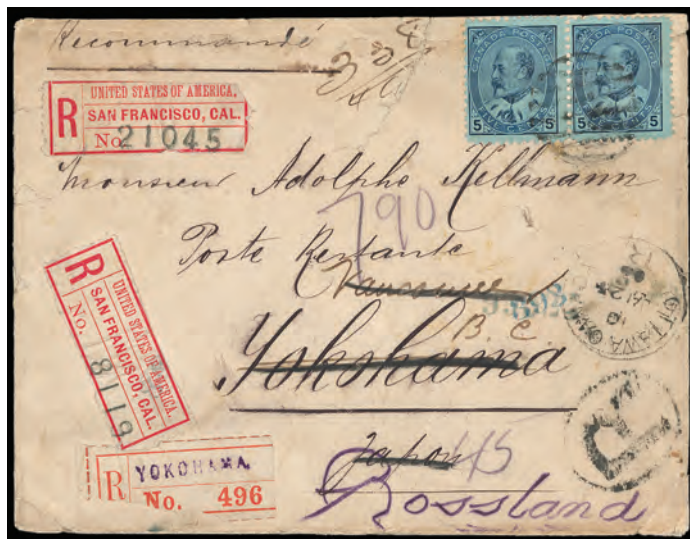 Recommandé
UNITED STATES OF AMERICA.
SAN FRANCISCO, CAL.
R No. 21045
CANADA POSTAGE
5 FIVE CENTS 5
CANADA POSTAGE
5 CENTS 5
Monsieur Adolphe Kellmann
790
Poste Restante
Vancouver
B.C.
Yokohama
Japon
OTTAWA
R
UNITED STATES OF AMERICA.
SAN FRANCISCO, CAL.
R No. 18119
R YOKOHAMA.
No. 496
R
Rossland